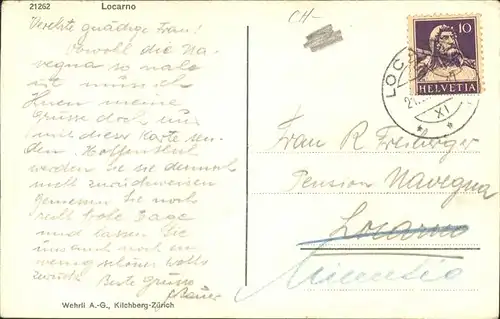 21262 Locarno
CH-
Verehrte gnädige Frau!
Obwohl die Na-
vegna so nahe
ist muss ich
Ihnen meine
Grüsse doch nur
mit dieser Karte sen-
den. Hoffentlich
werden Sie sie dennoch
nicht zurückweisen
Geniessen Sie noch
recht frohe Tage
und lassen Sie
uns auch noch ein
wenig schönes
zurück. Beste Grüsse
Bauer
Wehrli A.-G., Kilchberg-Zürich
10
HELVETIA
LOC
XI
Frau R Freiberger
Pension Navegna
Locarno
Minusio